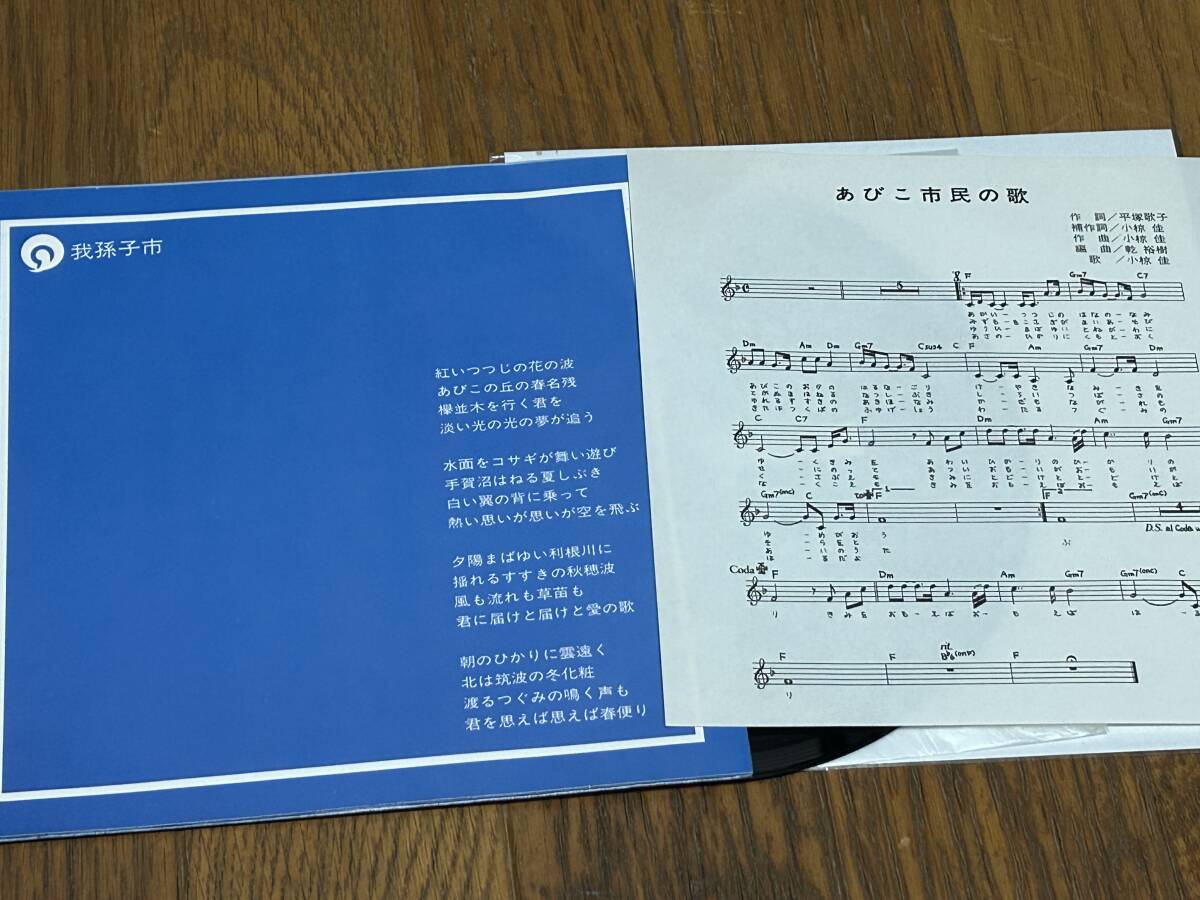 我孫子市
紅いつつじの花の波
あびこの丘の春名残
欅並木を行く君を
淡い光の光の夢が追う
水面をコサギが舞い遊び
手賀沼はねる夏しぶき
白い翼の背に乗って
熱い思いが思いが空を飛ぶ
夕陽まばゆい利根川に
揺れるすすきの秋穂波
風も流れも草苗も
君に届けと届けと愛の歌
朝のひかりに雲遠く
北は筑波の冬化粧
渡るつぐみの鳴く声も
君を思えば思えば春便り
あびこ市民の歌
作詞/平塚歌子
補作詞/小椋佳
作曲/小椋佳
編曲/乾裕樹
歌/小椋佳
F Gm7 C7
5
あかいーつつじの はなのーなみ
Dm Am Dm Gm7 Csus4 C F Am Gm7 Dm
C C7 F Dm Am Gm7
Gm7(onC) C to F 1 F 2 Gm7(onC) 4
D.S. al Coda
Coda
F Dm Am Gm7 Gm7(onC) C
りきみを おもーえば おーもえば はーる
F rit. F
り